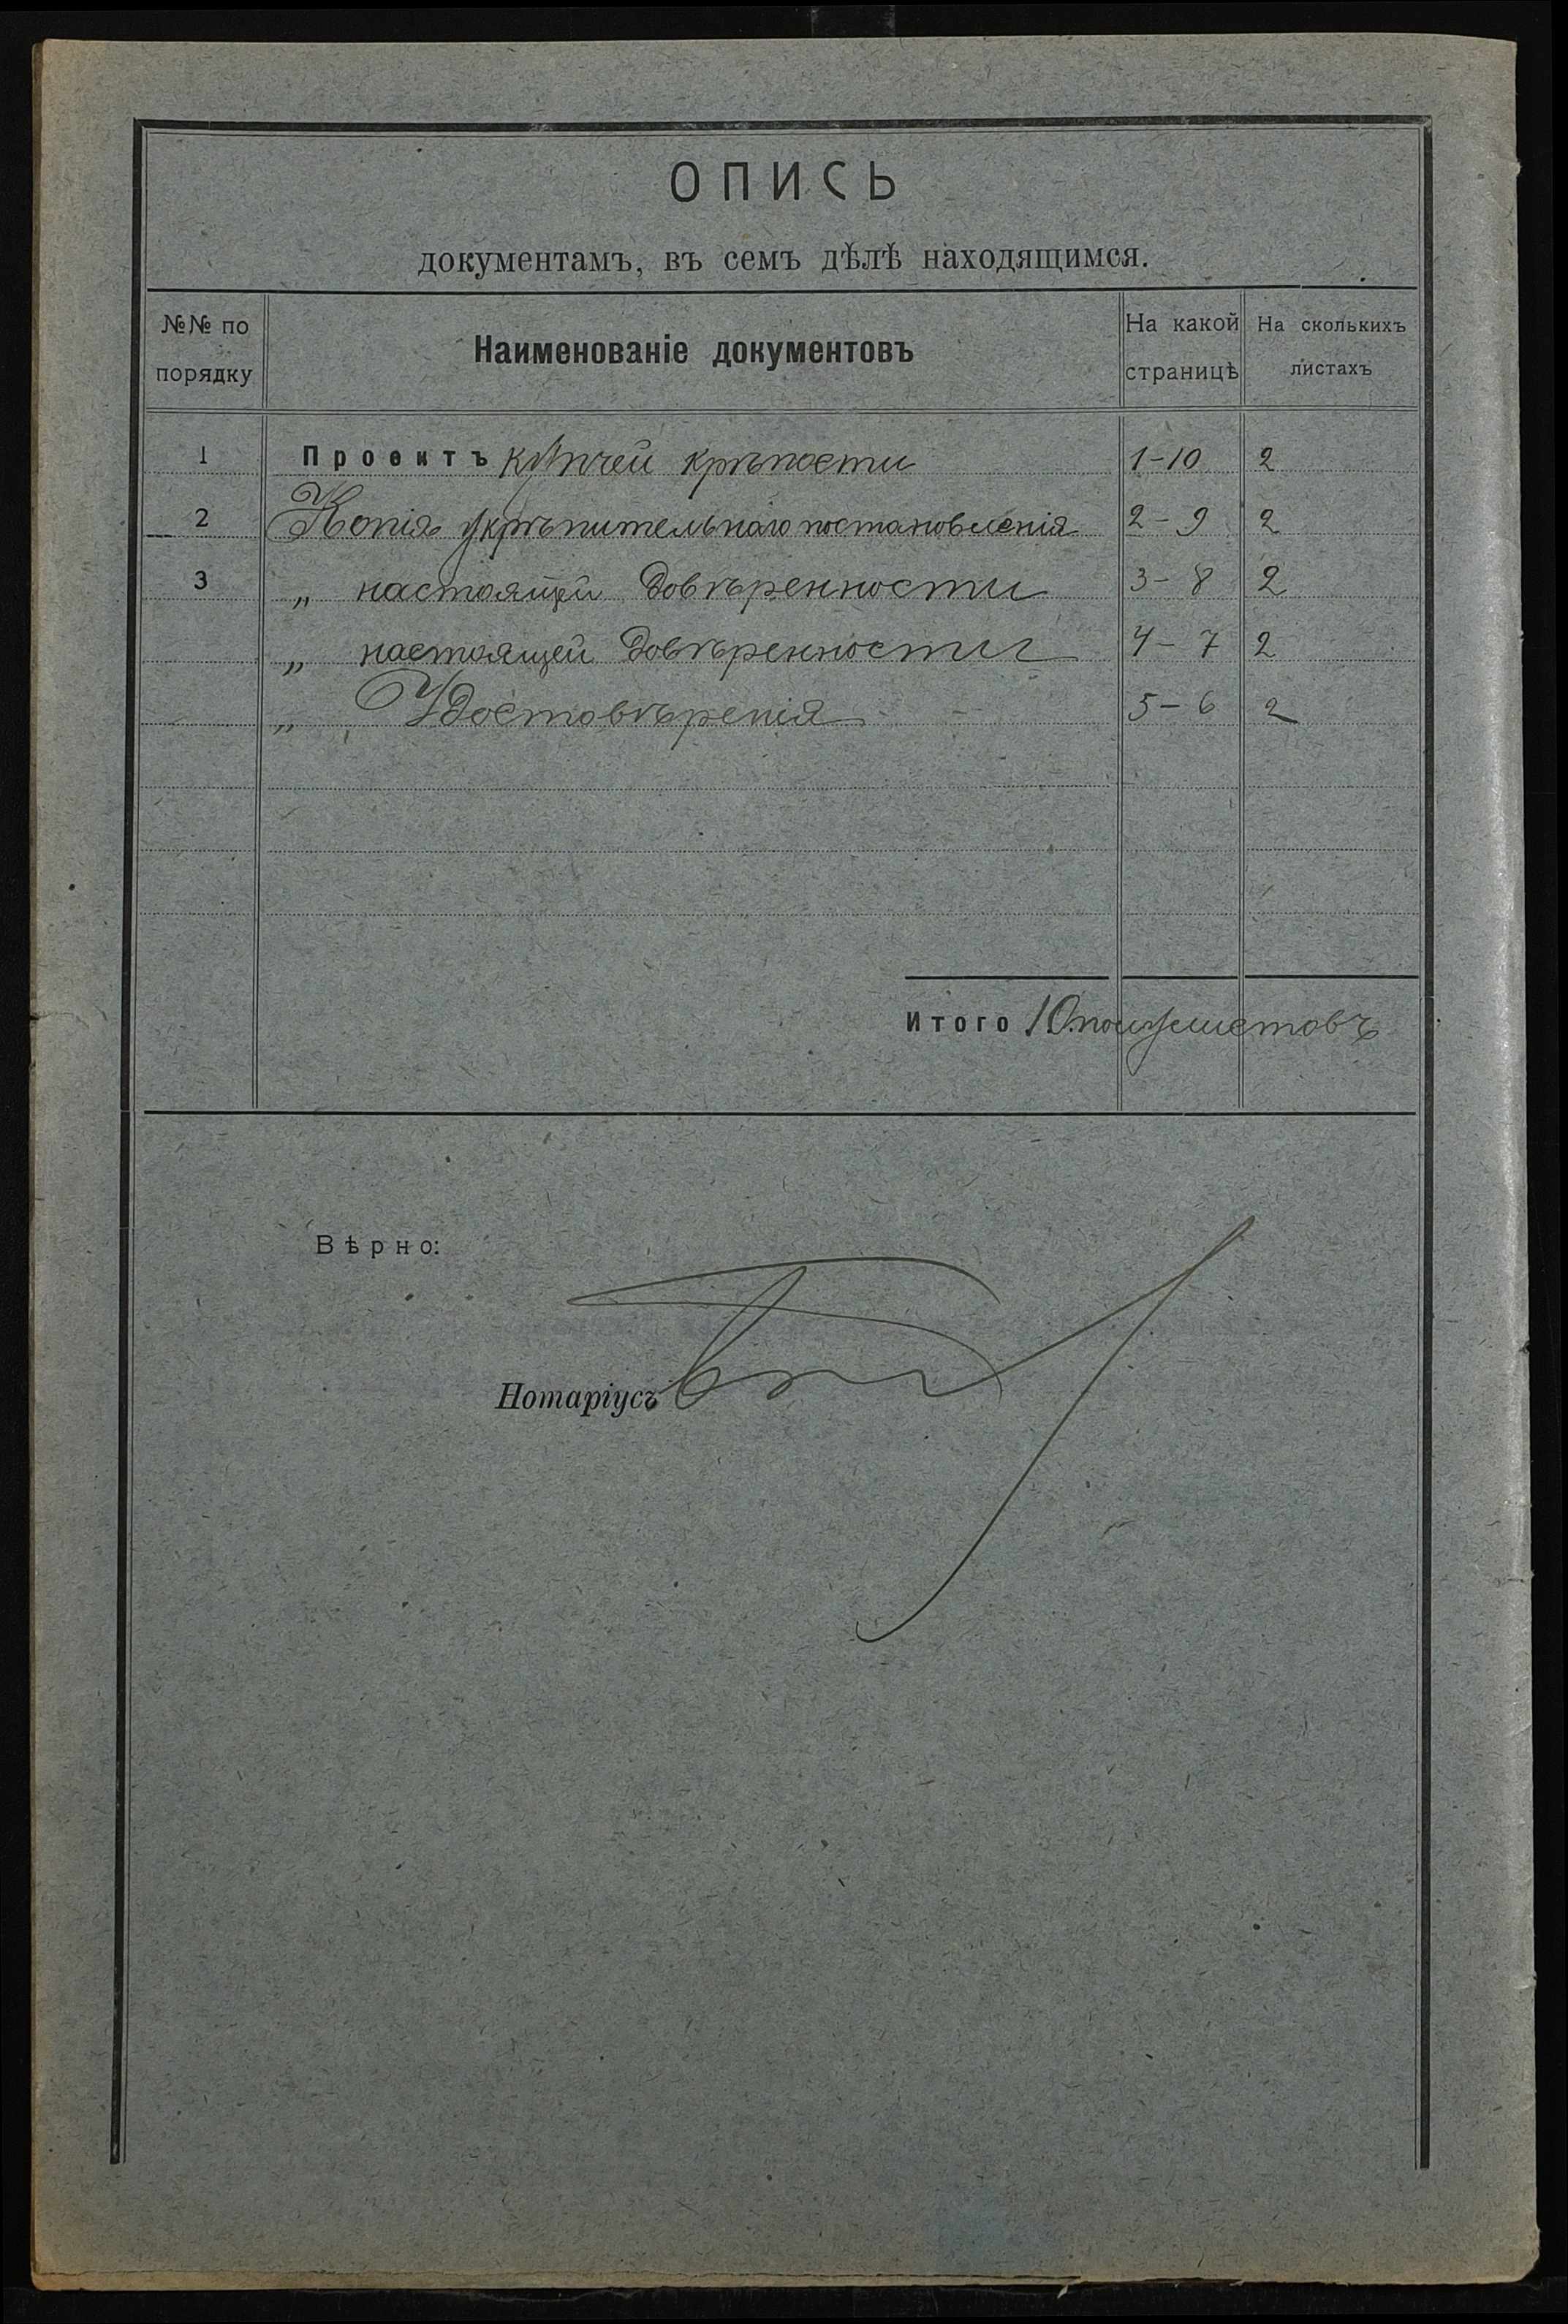 ОПИСЬ
документамъ, въ семъ дѣлѣ находящимся.
№№ по порядку Наименованіе документовъ На какой страницѣ На сколькихъ листахъ
1 Проектъ купчей крѣпости 1-10 2
2 Копія укрѣпительнаго постановленія 2-9 2
3 „ настоящей довѣренности 3-8 2
„ настоящей довѣренности 4-7 2
„ Удостовѣренія 5-6 2
Итого 10 полулистовъ
Вѣрно:
Нотаріусъ